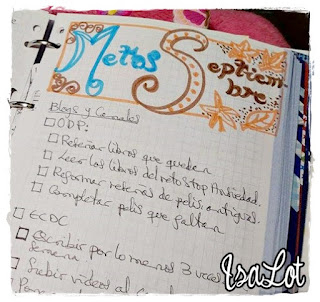 Metas Septiem-
bre
Blogs y Canales
ODP:
Reseñar libros que quedan
Leer los libros del reto Stop Ansiedad.
Reformar reseñas de pelis antiguas.
Completar pelis que faltan
ECDC
Escribir por lo menos 3 veces
semana
Subir videos al
IsaLot